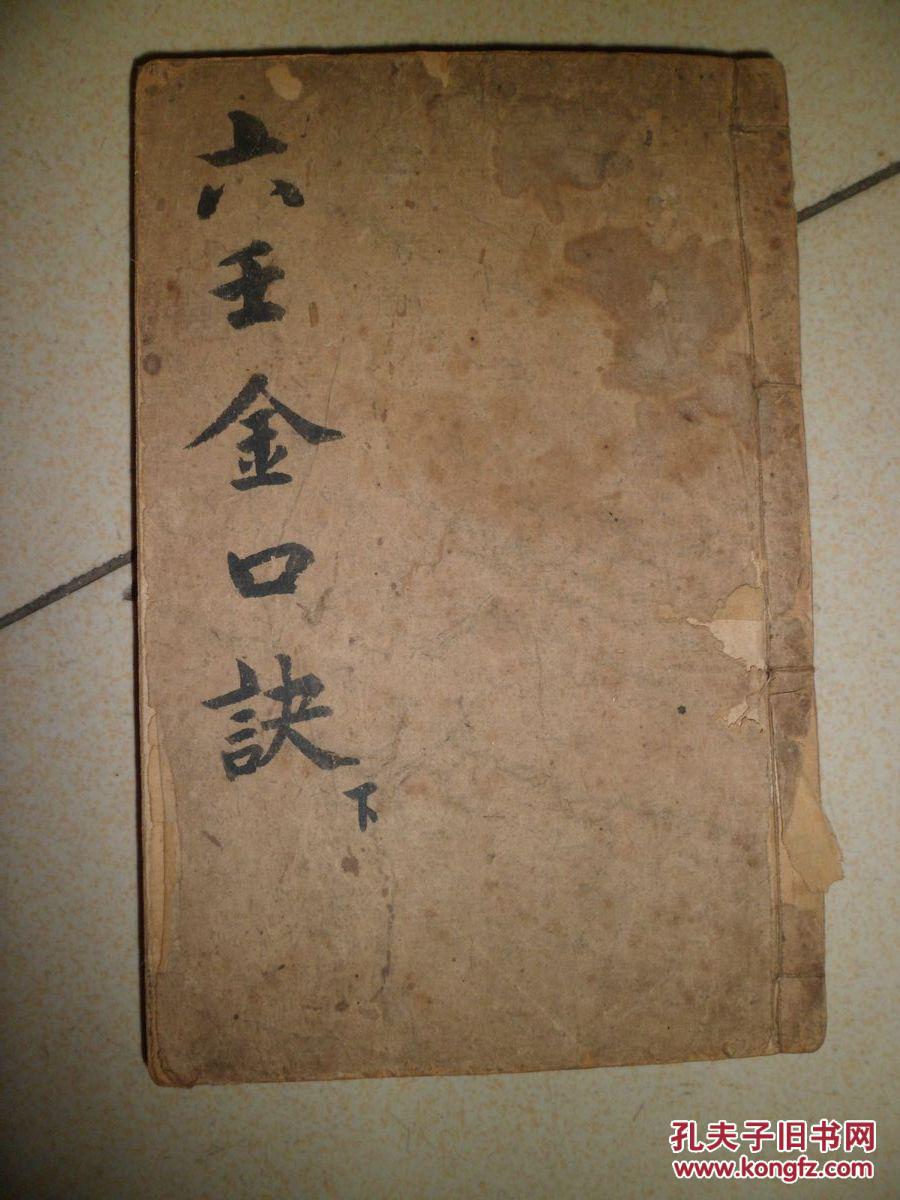 六壬金口訣
下
孔夫子旧书网
www.kongfz.com